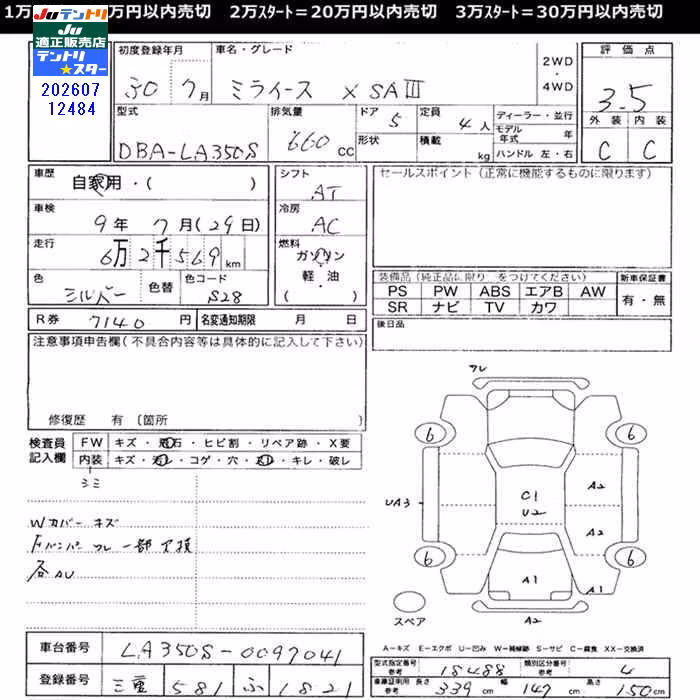 1万 万円以内売切 2万スタート=20万円以内売切 3万スタート=30万円以内売切
Juテントリ
Ju
適正販売店
テントリ
★スター
202607
12484
初度登録年月 車名・グレード 2WD・4WD 評価点
30 7月 ミライース X SAⅢ 3.5
型式 排気量 ドア 定員 ディーラー・並行 外装 内装
DBA-LA350S 660 CC 5 4人 モデル年式 年 C C
形状 積載 kg ハンドル 左・右
車歴 シフト セールスポイント(正常に機能するものに限ります)
自家用・( ) AT
車検 冷房
9年 7月(29日) AC
走行 燃料
6万2千569km ガソリン
軽・油
( )
色 色替 色コード
シルバー S28
装備品(純正品に限り○をつけてください) 新車保証書
PS PW ABS エアB AW 有・無
SR ナビ TV カワ
R券 7140円 名変通知期限 月 日 後日品
注意事項申告欄(不具合内容等は具体的に記入して下さい)
修復歴 有 〔箇所
検査員 FW キズ・飛石・ヒビ割・リペア跡・X要
記入欄 内装 キズ・汚レ・コゲ・穴・スレ・キレ・破レ
ゴミ
Wカバー キズ
Fバンパー ワレ 一部欠損
各AU
ワレ
6 6
UA3 C1 U2 A2
A2
6 6
A1 A1
スペア A2
A=キズ E=エクボ U=凹み W=補修跡 S=サビ C=腐食 XX=交換済
車台番号 LA350S-0097041
型式指定番号 参考 18488 類別区分番号 参考 4
登録番号 三重 581 ふ1821
車庫証明用 参考 長さ 339cm 幅 147cm 高さ 150cm